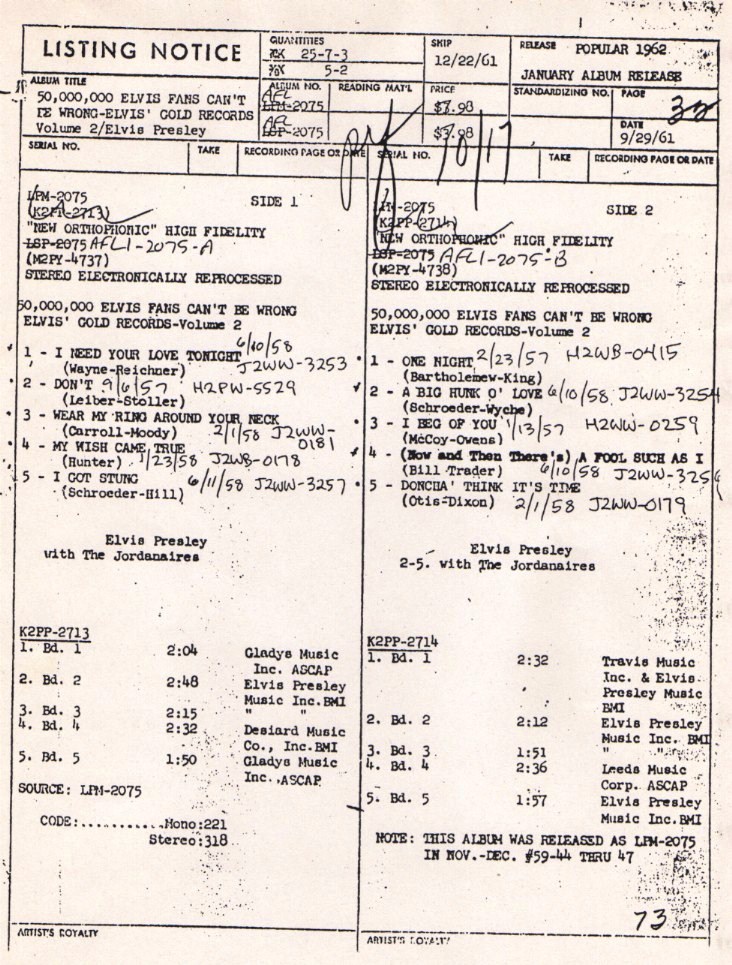 LISTING NOTICE
QUANTITIES
25-7-3
5-2
SHIP
12/22/61
RELEASE POPULAR 1962
JANUARY ALBUM RELEASE
ALBUM TITLE
50,000,000 ELVIS FANS CAN'T
BE WRONG-ELVIS' GOLD RECORDS
Volume 2/Elvis Presley
ALBUM NO.
AFL
LPM-2075
AFL
LSP-2075
READING MAT'L
PRICE
$3.98
$3.98
STANDARDIZING NO.
PAGE
DATE
9/29/61
10/17
SERIAL NO.
TAKE
RECORDING PAGE OR DATE
SERIAL NO.
TAKE
RECORDING PAGE OR DATE
LPM-2075
SIDE 1
(K2PP-2713)
"NEW ORTHOPHONIC" HIGH FIDELITY
LSP-2075 AFL1-2075-A
(M2PY-4737)
STEREO ELECTRONICALLY REPROCESSED
50,000,000 ELVIS FANS CAN'T BE WRONG
ELVIS' GOLD RECORDS-Volume 2
1 - I NEED YOUR LOVE TONIGHT 6/10/58
(Wayne-Reichner) J2WW-3253
2 - DON'T 9/6/57 H2PW-5529
(Leiber-Stoller)
3 - WEAR MY RING AROUND YOUR NECK
(Carroll-Moody) 2/1/58 J2WW-
0181
4 - MY WISH CAME TRUE
(Hunter) 1/23/58 J2WB-0178
5 - I GOT STUNG 6/11/58 J2WW-3257
(Schroeder-Hill)
Elvis Presley
with The Jordanaires
K2PP-2713
1. Bd. 1 2:04 Gladys Music
Inc. ASCAP
2. Bd. 2 2:48 Elvis Presley
Music Inc.BMI
3. Bd. 3 2:15 " "
4. Bd. 4 2:32 Desiard Music
Co., Inc.BMI
5. Bd. 5 1:50 Gladys Music
Inc.,ASCAP
SOURCE: LPM-2075
CODE:..........Mono:221
Stereo:318
ARTIST'S ROYALTY
LPM-2075
SIDE 2
(K2PP-2714)
"NEW ORTHOPHONIC" HIGH FIDELITY
LSP-2075 AFL1-2075-B
(M2PY-4738)
STEREO ELECTRONICALLY REPROCESSED
50,000,000 ELVIS FANS CAN'T BE WRONG
ELVIS' GOLD RECORDS-Volume 2
1 - ONE NIGHT 2/23/57 H2WB-0415
(Bartholemew-King)
2 - A BIG HUNK O' LOVE 6/10/58 J2WW-3254
(Schroeder-Wyche)
3 - I BEG OF YOU 1/13/57 H2WW-0259
(McCoy-Owens)
4 - (Now and Then There's) A FOOL SUCH AS I
(Bill Trader) 6/10/58 J2WW-3256
5 - DONCHA' THINK IT'S TIME
(Otis-Dixon) 2/1/58 J2WW-0179
Elvis Presley
2-5. with The Jordanaires
K2PP-2714
1. Bd. 1 2:32 Travis Music
Inc. & Elvis
Presley Music
BMI
2. Bd. 2 2:12 Elvis Presley
Music Inc. BMI
3. Bd. 3 1:51 " "
4. Bd. 4 2:36 Leeds Music
Corp. ASCAP
5. Bd. 5 1:57 Elvis Presley
Music Inc.BMI
NOTE: THIS ALBUM WAS RELEASED AS LPM-2075
IN NOV.-DEC. #59-44 THRU 47
73
ARTIST'S ROYALTY